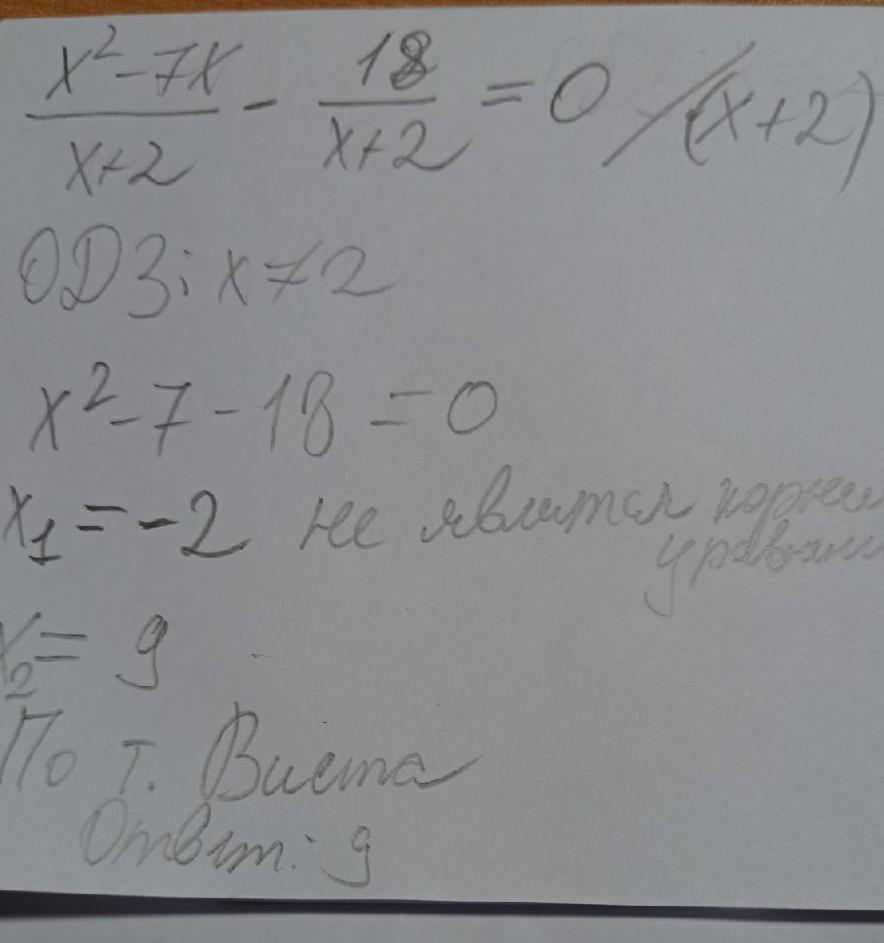 x²-7x/x+2 - 18/x+2 = 0 /·(x+2)
ОДЗ: x≠2
x²-7-18=0
x₁=-2 не явится корнем
уравнен
x₂= 9
По т. Виета
Ответ: 9